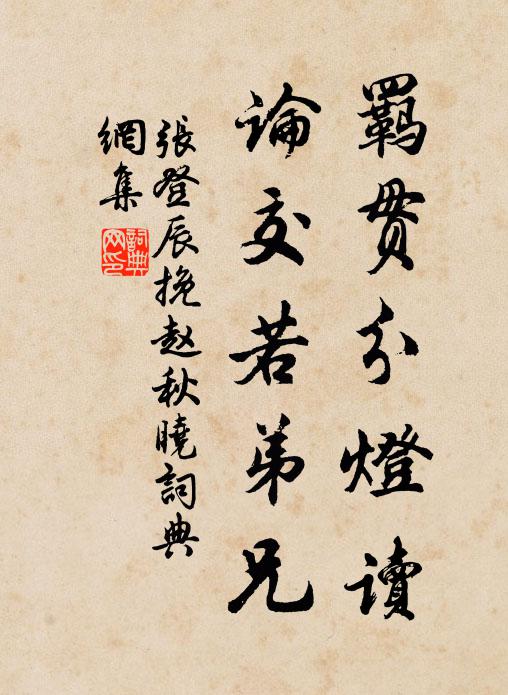 羈貫分燈讀
論交若弟兄
張登辰挽赵秋曉詞典
網集
詞典網印